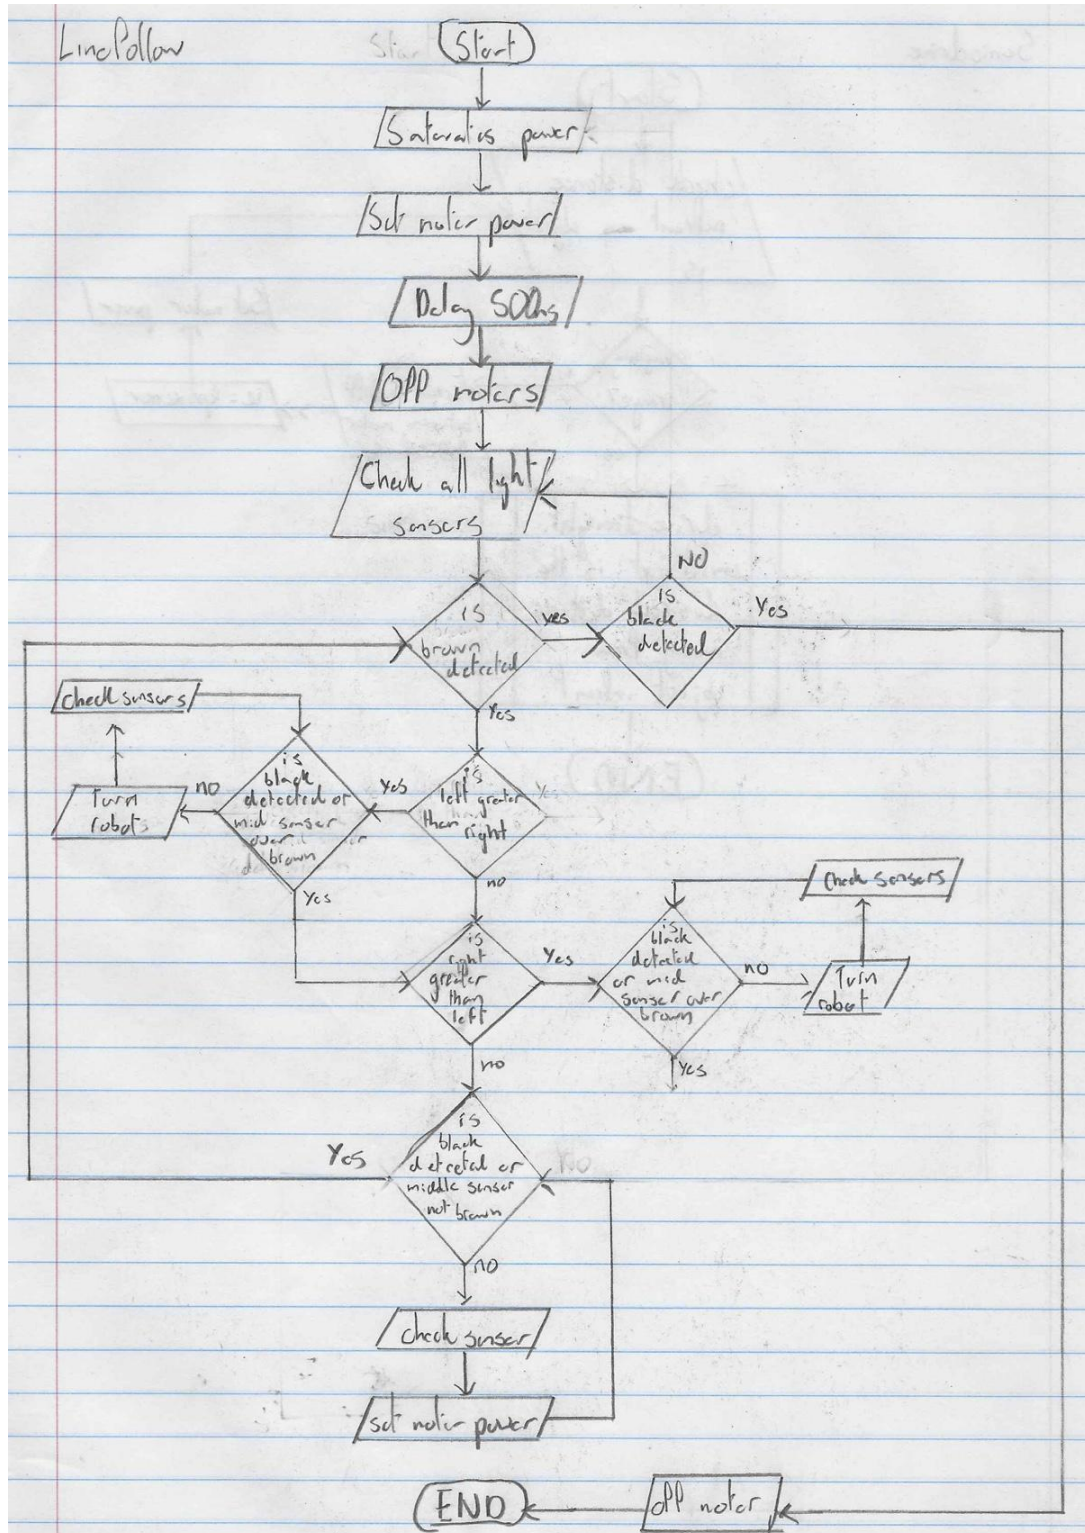 LineFollow
Start
power
Set motor power
Delay 500ms
OFF motors
Check all light
sensors
is
brown
detected
yes
is
black
detected
NO
Yes
Yes
check sensors
Turn
robot
no
is
black
detected or
mid sensor
over
brown
Yes
Yes
is
left greater
than
right
no
is
right
greater
than
left
Yes
is
black
detected
or mid
sensor over
brown
no
Turn
robot
check sensors
Yes
no
is
black
detected or
middle sensor
not brown
Yes
no
check sensor
set motor power
off motor
END